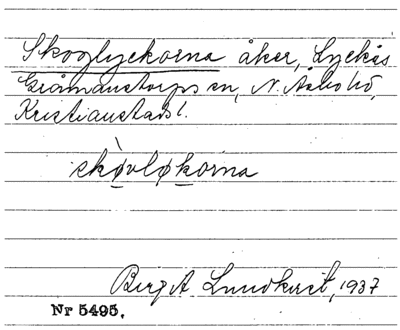 Skoglyckorna åker, Lyckås
Gråmanstorps sn, N. Åsbo hd,
Kristianstads l.
skòvløkorna
Birgit Lundkvist, 1937
Nr 5495.